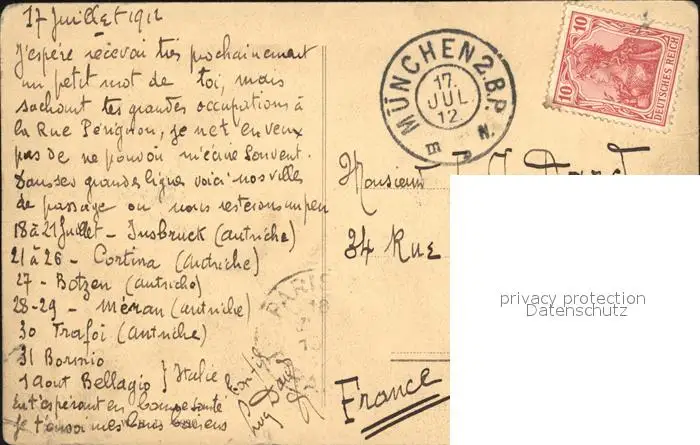 17 Juillet 1912
J'espère recevoir très prochainement
un petit mot de toi, mais
sachant tes grandes occupations à
la Rue Pérignon, je ne t'en veux
pas de ne pouvoir m'écrire souvent.
Dans ses grandes lignes voici nos villes
de passage ou nous resterons un peu
18 à 21 Juillet - Insbruck (autriche)
21 à 26 - Cortina (autriche)
27 - Botzen (autriche)
28-29 - Méran (autriche)
30 Trafoi (autriche)
31 Bormio
1 aout Bellagio } Italie
En t'espérant en bonne santé
je t'envoie mes bons baisers
MÜNCHEN 2. B.P.
17.
JUL
12.
N.
10 10
DEUTSCHES REICH
Monsieur
34 Rue
France
PARIS
privacy protection
Datenschutz